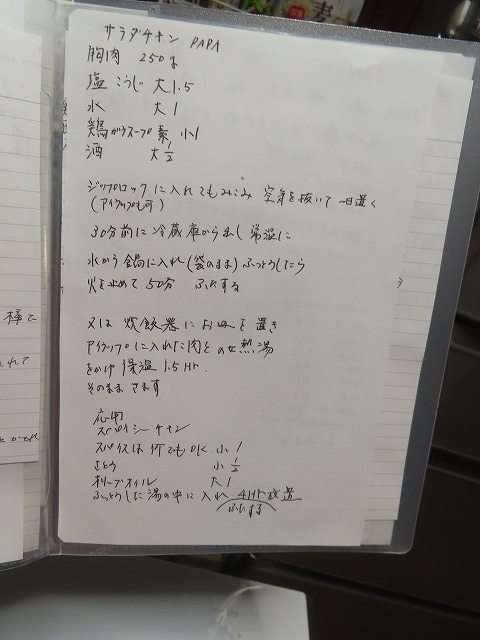 サラダチキン PAPA
胸肉 250g
塩こうじ 大1.5
水 大1
鶏がらスープ素 小1
酒 大1/2
ジップロックに入れてもみこみ 空気を抜いて 一日置く
(アイラップも可)
30分前に冷蔵庫から出し 常温に
水から鍋に入れ(袋のまま)ふっとうしたら
火を止めて50分 ふたする
又は 炊飯器にお皿を置き
アイラップに入れた肉をのせ熱湯
をかけ 保温 1.5Hr.
そのまま さます
応用
スパイシーチキン
スパイスは何でもOK 小1
さとう 小1/2
オリーブオイル 大1
ふっとうした湯の中に入れ 4Hr放置
ふたする